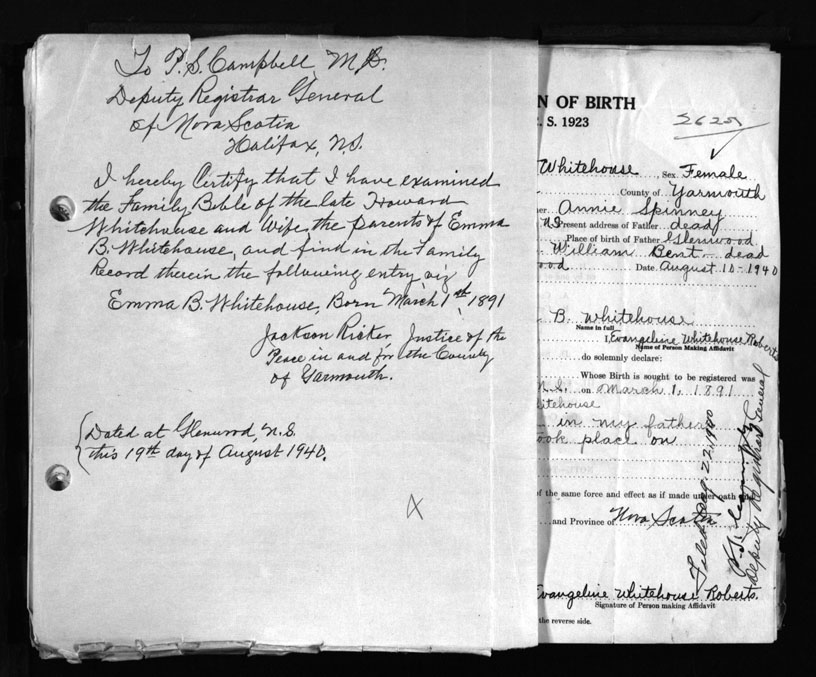 To P. S. Campbell, M.D.
Deputy Registrar General
of Nova Scotia
Halifax, N.S.
I hereby Certify that I have examined
the Family Bible of the late Howard
Whitehouse and Wife, the Parents of Emma
B. Whitehouse, and find in the Family
Record therein the following entry viz
Emma B. Whitehouse, Born March 1st, 1891
Jackson Ricker, Justice of the
Peace in and for the County
of Yarmouth.
Dated at Glenwood, N.S.
this 19th day of August 1940.
X
N OF BIRTH
. S. 1923
Whitehouse Sex Female
County of Yarmouth
Annie Spinney
N.S Present address of Father dead
Place of birth of Father Glenwood
William Bent dead
ood Date August 10-1940
B. Whitehouse
Name in full
I, Evangeline Whitehouse Roberts
Name of Person Making Affidavit
do solemnly declare:
Whose Birth is sought to be registered was
N.S. on March 1, 1891
hitehouse
in my father
ook place on
of the same force and effect as if made under oath
and Province of Nova Scotia
Evangeline Whitehouse Roberts.
Signature of Person making Affidavit
the reverse side.
Filed Aug. 22, 1940
Deputy Registrar General